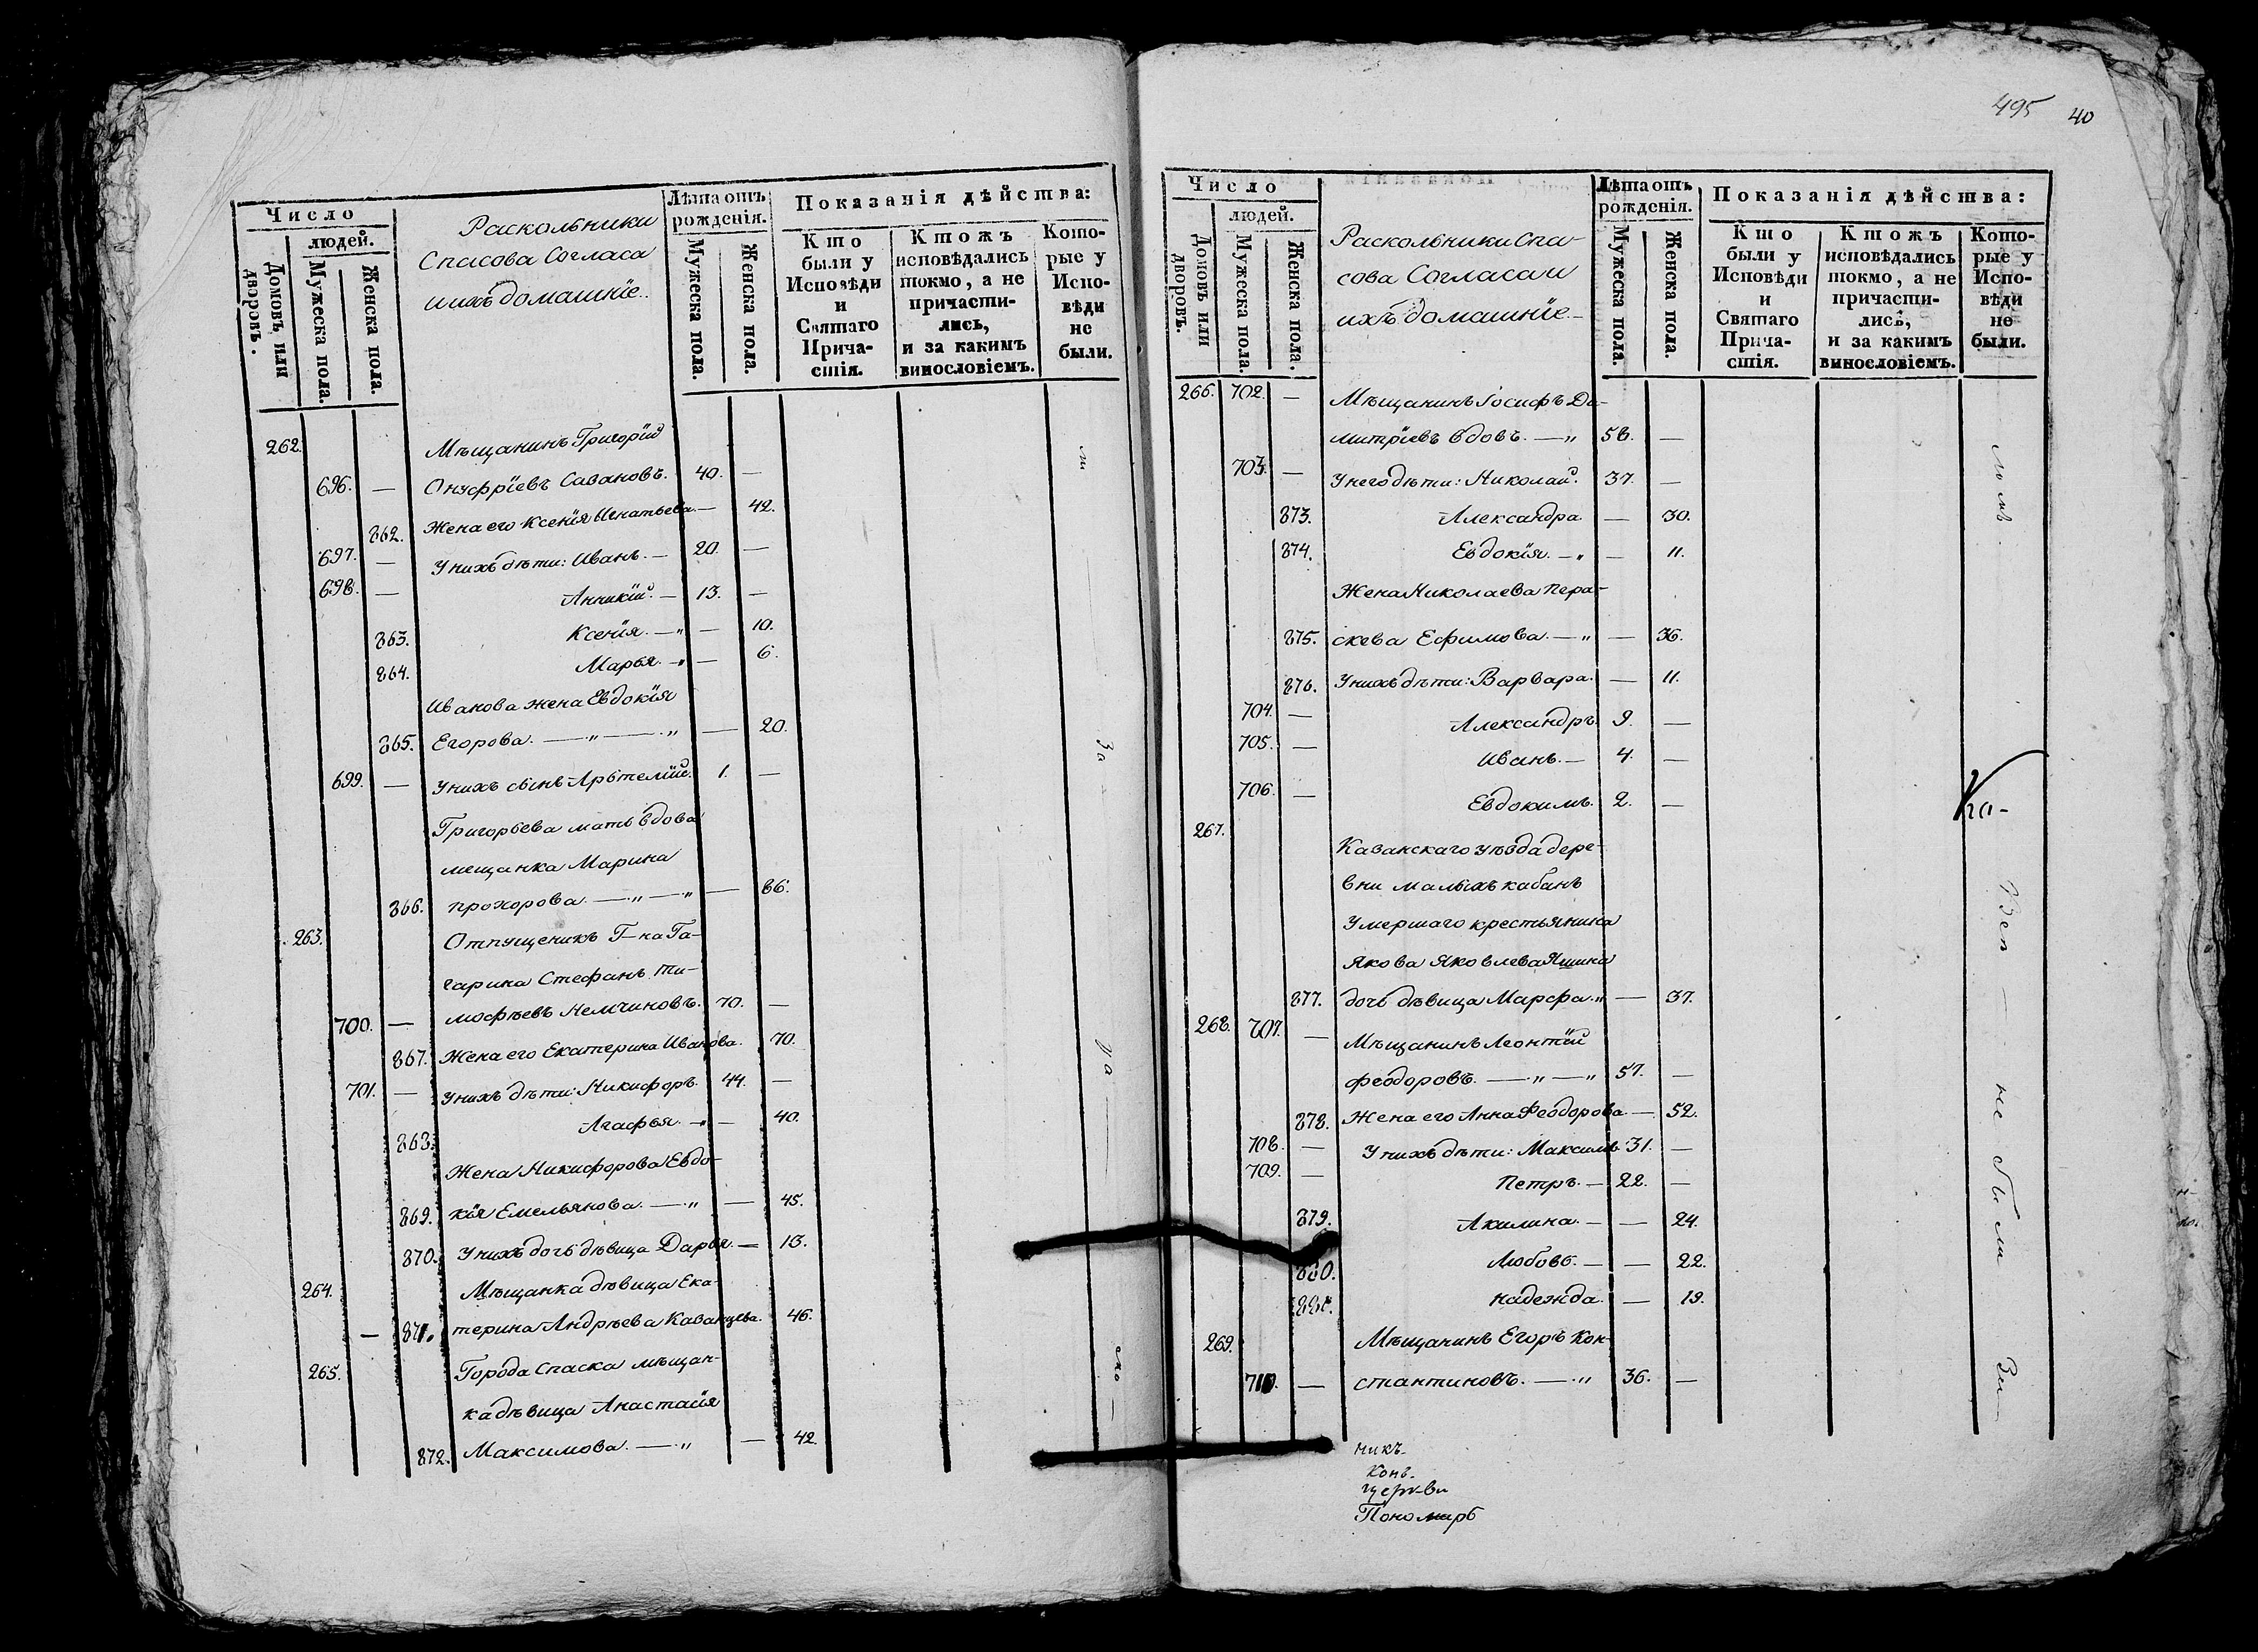 Число
людей.
Домовъ или дворовъ.
Мужеска пола.
Женска пола.
Раскольники
Спасова Согласа
и ихъ домашніе.
Лѣта отъ рожденія.
Мужеска пола.
Женска пола.
Показанія дѣйства:
Кто были у Исповѣди и Святаго Причастія.
Ктожъ исповѣдались токмо, а не причастились, и за какимъ винословіемъ.
Которые у Исповѣди не были.
262. Мѣщанинъ Григорій
696. — Онуфріевъ Савановъ. 40. —
862. Жена его Ксенія Игнатьева — 42.
697. — У нихъ дѣти: Иванъ. — 20. —
698. — Аникій. — 13. —
863. Ксенія. — — 10.
864. Марья. — — 6.
Иванова жена Евдокія
865. Егорова. — — 20.
699. — У нихъ сынъ Артемій. 1. —
Григорьева мать вдова
мещанка Марина
866. Прохорова. — — 66.
263. Отпущеникъ Г-на Га-
гарина Стефанъ Ти-
700. — мофѣевъ Немчиновъ. 70. —
867. Жена его Екатерина Иванова. 70.
701. — У нихъ дѣти: Никифоръ. 44. —
868. Агафья. — — 40.
Жена Никифорова Евдо-
869. кія Емельянова. — — 45.
870. У нихъ дочь дѣвица Дарья. — 13.
264. Мѣщанка дѣвица Ека-
— 871. терина Андрѣева Казанцева. 46.
265. Города Спаска мѣщан-
ка дѣвица Анастасія
872. Максимова. — — 42.
За
495 40
Число
людей.
Домовъ или дворовъ.
Мужеска пола.
Женска пола.
Раскольники Спа-
сова Согласа и
ихъ домашніе.
Лѣта отъ рожденія.
Мужеска пола.
Женска пола.
Показанія дѣйства:
Кто были у Исповѣди и Святаго Причастія.
Ктожъ исповѣдались токмо, а не причастились, и за какимъ винословіемъ.
Которые у Исповѣди не были.
266. 702. — Мѣщанинъ Іосифъ Ди-
митріевъ вдовъ. — 58. —
703. — У него дѣти: Николай. 37. —
873. Александра. — 30.
874. Евдокія. — — 11.
Жена Николаева Пера-
875. скева Ефимова. — — 36.
876. У нихъ дѣти: Варвара. — 11.
704. — Александръ. 9. —
705. — Иванъ. — 4. —
706. — Евдокимъ. 2. —
267. Казанскаго уѣзда дере-
вни малыхъ кабанъ
умершаго крестьянина
Якова Яковлева Яшина
877. дочь дѣвица Марфа. — 37.
268. 707. — Мѣщанинъ Леонтій
Феодоровъ. — 57. —
878. Жена его Анна Феодорова — 52.
708. — У нихъ дѣти: Максимъ 31. —
709. — Петръ. — 22. —
879. Акилина. — — 24.
880. Любовь. — — 22.
881. Надежда. — 19.
269. Мѣщанинъ Егоръ Кон-
710. — стантиновъ. — 36. —
не были
никъ
Конъ.
церкви
Пономарь